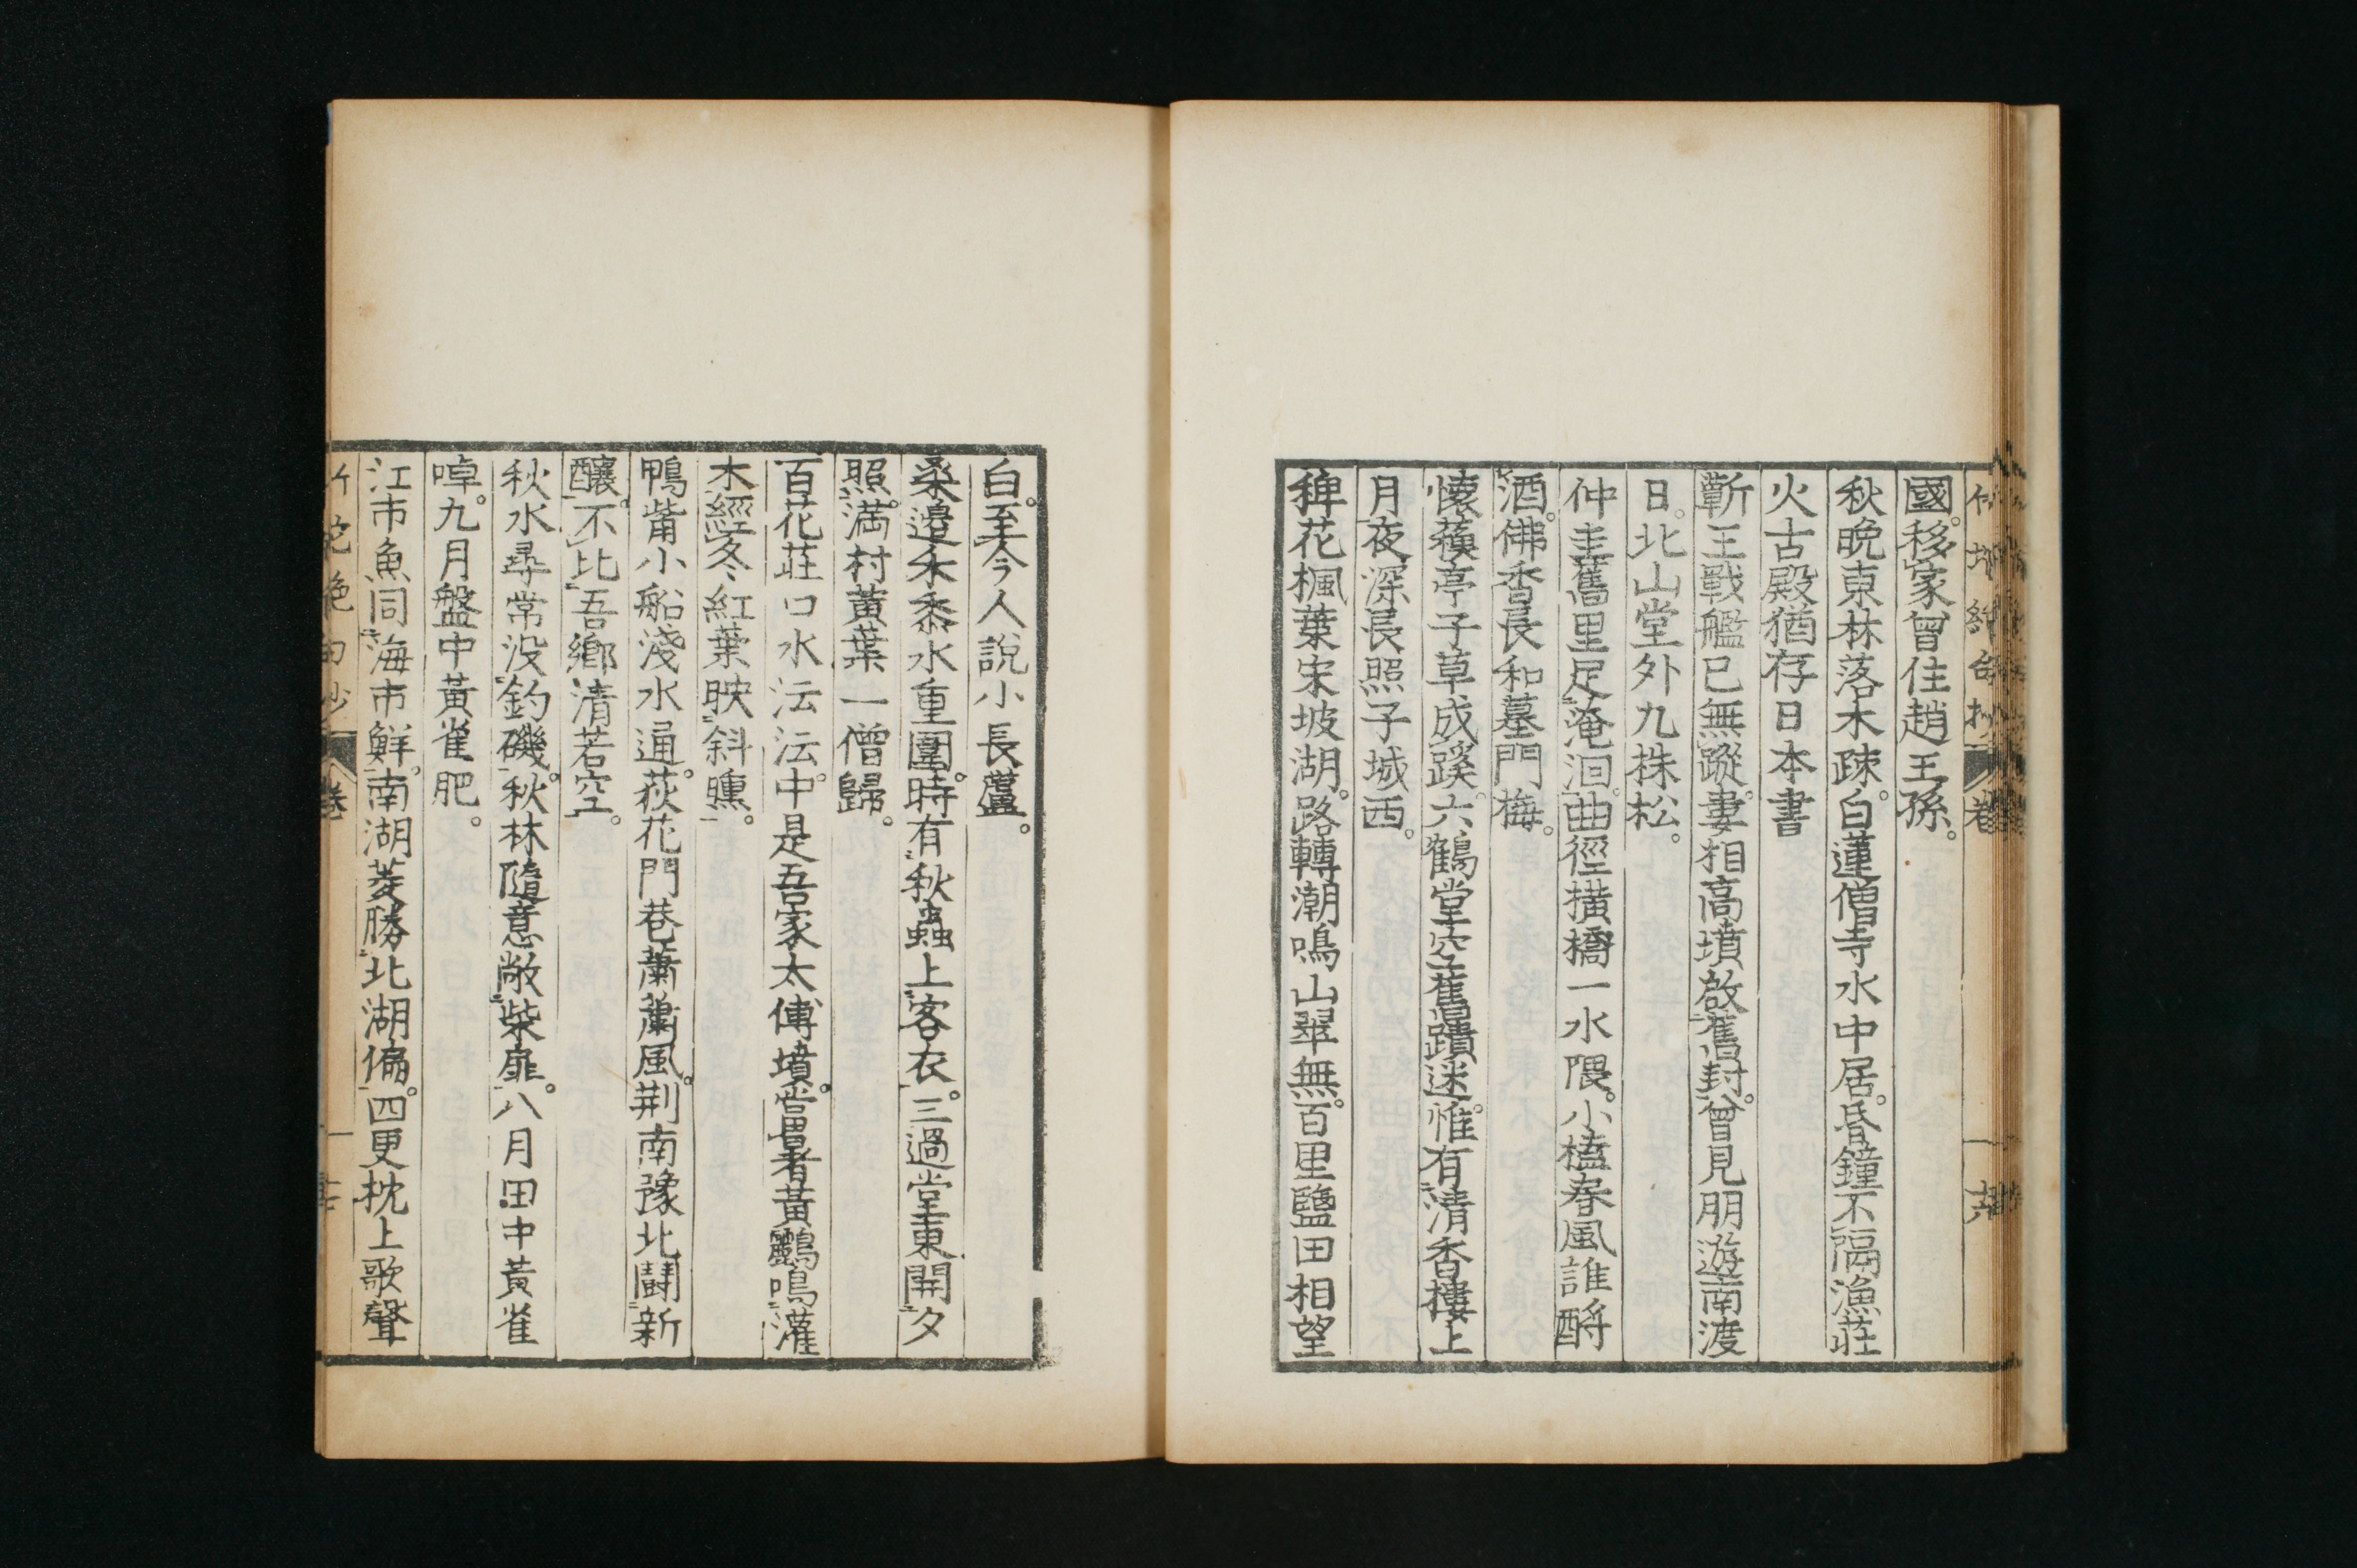 國。移家曾住趙王孫。
秋晩東林落木疎。白蓮僧寺水中居。昏鐘不隔漁莊
火古殿猶存日本書
蘄王戰艦已無蹤。婁相高墳啟舊封。曾見朋遊南渡
日。北山堂外九株松。
仲圭舊里足淹洄。曲徑橫橋一水隈。小櫨春風誰酹
酒。佛香長和墓門梅。
懷蘓亭子草成蹊。六鶴堂空舊蹟迷。惟有清香樓上
月夜深長照子城西。
稗花楓葉宋坡湖。路轉潮鳴山翠無。百里鹽田相望
白。至今人說小長蘆。
桑邊禾黍水重圍。時有秋蟲上客衣。三過堂東開夕
照。滿村黃葉一僧歸。
百花莊口水沄沄。中是吾家太傅墳。當暑黃鸝鳴灌
木經冬紅葉映斜曛。
鴨觜小船淺水通。荻花門巷蕭蕭風。荆南豫北鬪新
釀。不比吾鄉清若空。
秋水尋常没釣磯。秋林隨意敞柴扉。八月田中黃雀
啅。九月盤中黃雀肥。
江市魚同海市鮮。南湖菱勝北湖偏。四更枕上歌聲